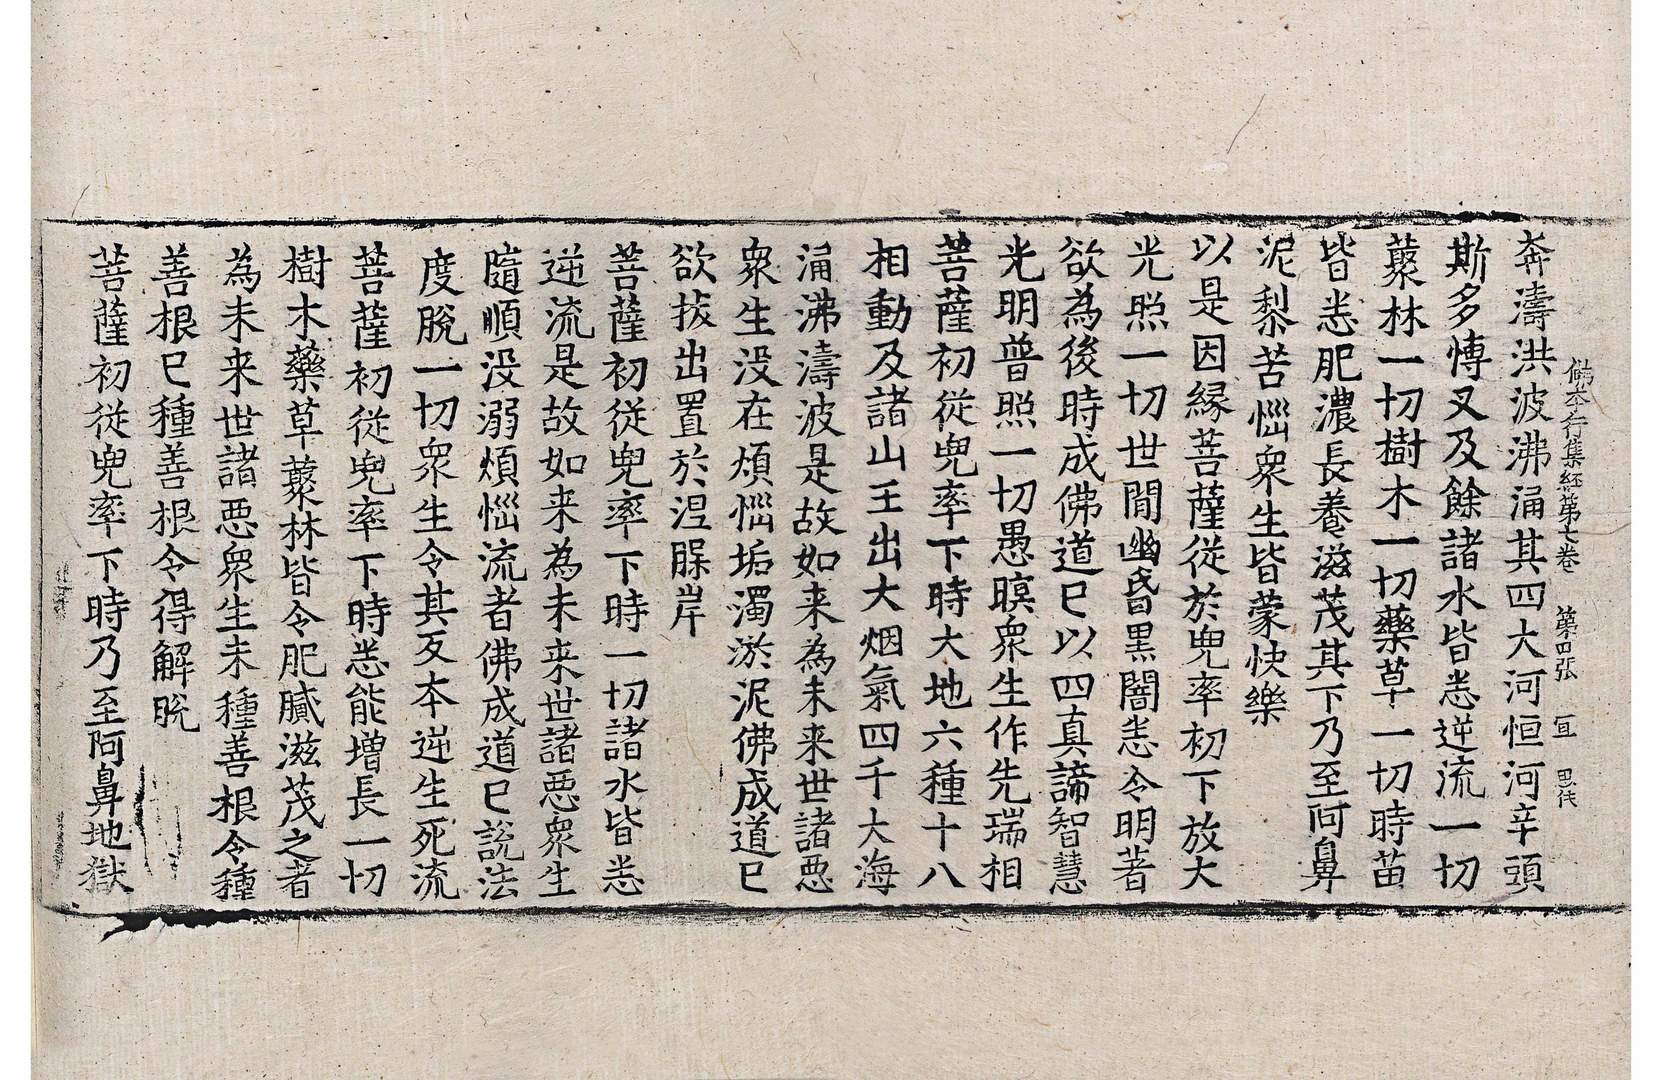 佛本行集經第七卷　第四張　宜　思伏
奔濤洪波沸涌其四大河恒河辛頭
斯多愽叉及餘諸水皆悉逆流一切
藂林一切樹木一切藥草一切時苗
皆悉肥濃長養滋茂其下乃至阿鼻
泥梨苦惱衆生皆蒙快樂
以是因縁菩薩従於兜率初下放大
光照一切世間幽昏黒闇悉令明著
欲為後時成佛道已以四真諦智慧
光明普照一切愚瞑衆生作先瑞相
菩薩初従兜率下時大地六種十八
相動及諸山王出大烟氣四千大海
涌沸濤波是故如来為未来世諸悪
衆生没在煩惱垢濁淤泥佛成道已
欲拔出置於涅槃岸
菩薩初従兜率下時一切諸水皆悉
逆流是故如来為未来世諸悪衆生
隨順没溺煩惱流者佛成道已説法
度脱一切衆生令其反本逆生死流
菩薩初従兜率下時悉能增長一切
樹木藥草藂林皆令肥膩滋茂之者
為未来世諸悪衆生未種善根令種
善根已種善根令得解脱
菩薩初従兜率下時乃至阿鼻地獄